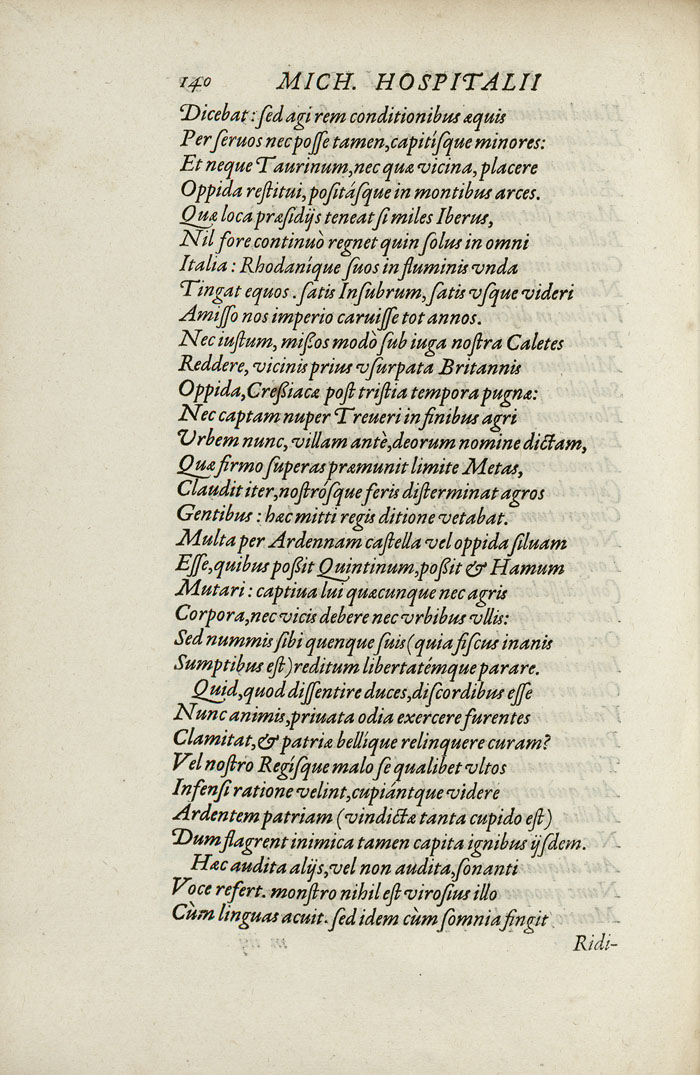 140 MICH. HOSPITALII
Dicebat: ſed agi rem conditionibus æquis
Per ſeruos nec poſſe tamen, capitiſque minores:
Et neque Taurinum, nec quæ vicina, placere
Oppida reſtitui, poſitáſque in montibus arces.
Quæ loca præſidijs teneat ſi miles Iberus,
Nil fore continuò regnet quin ſolus in omni
Italia: Rhodaníque ſuos in fluminis vnda
Tingat equos. ſatis Inſubrum, ſatis vſque videri
Amiſſo nos imperio caruiſſe tot annos.
Nec iuſtum, mißos modò ſub iuga noſtra Caletes
Reddere, vicinis prius vſurpata Britannis
Oppida, Creßiacæ poſt triſtia tempora pugnæ:
Nec captam nuper Treueri in finibus agri
Vrbem nunc, villam antè, deorum nomine dictam,
Quæ firmo ſuperas præmunit limite Metas,
Claudit iter, noſtróſque feris diſterminat agros
Gentibus: hæc mitti regis ditione vetabat.
Multa per Ardennam caſtella vel oppida ſiluam
Eſſe, quibus poßit Quintinum, poßit & Hamum
Mutari: captiua lui quæcunque nec agris
Corpora, nec vicis debere nec vrbibus vllis:
Sed nummis ſibi quenque ſuis (quia fiſcus inanis
Sumptibus eſt) reditum libertatémque parare.
Quid, quod diſſentire duces, diſcordibus eſſe
Nunc animis, priuata odia exercere furentes
Clamitat, & patriæ bellíque relinquere curam?
Vel noſtro Regiſque malo ſe qualibet vltos
Infenſi ratione velint, cupiántque videre
Ardentem patriam (vindictæ tanta cupido eſt)
Dum flagrent inimica tamen capita ignibus ijſdem.
Hæc audita alijs, vel non audita, ſonanti
Voce refert. monſtro nihil eſt viroſius illo
Cùm linguas acuit. ſed idem cùm ſomnia fingit
Ridi-